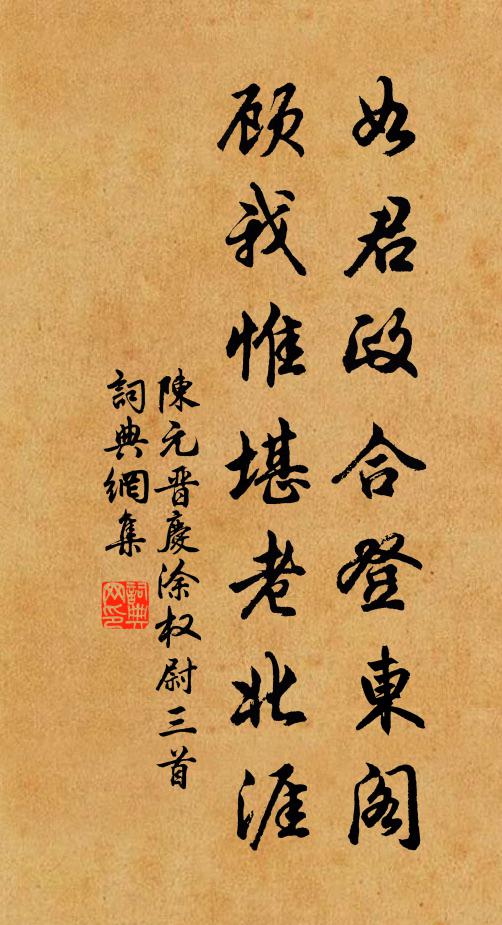 如君政合登東阁
顾我惟堪老北涯
陳元晋慶涂权尉三首
詞典網集
詞典網印